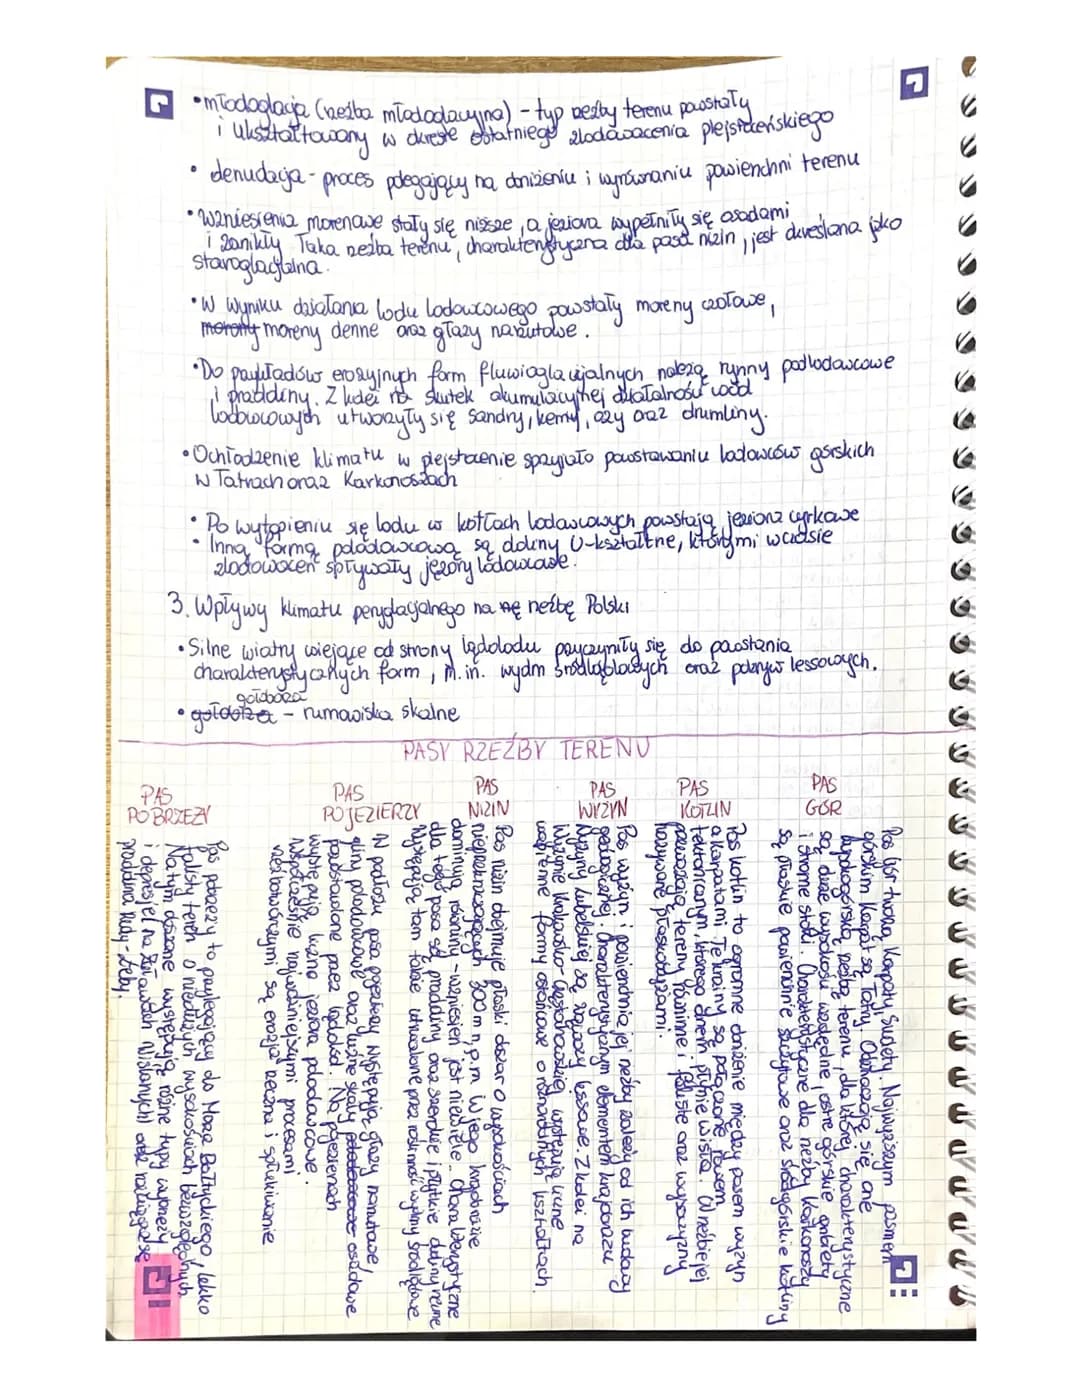 • młodoglacja (rzeźba młodoglacyjna) - typ rzeźby terenu powstały
i ukształtowany w okresie ostatniego zlodowacenia plejstoceńskiego
• denudacja - proces polegający na obniżeniu i wyrównaniu powierzchni terenu
• Wzniesienia morenowe stały się niższe, a jeziora wypełniły się osadami
i zanikły. Taka rzeźba terenu, charakterystyczna dla pasa nizin, jest określana jako
staroglacjalna.
• W wyniku działania lodu lodowcowego powstały moreny czołowe,
moreny denne oraz głazy narzutowe.
• Do przykładów erozyjnych form fluwioglacjalnych należą rynny podlodowcowe
i pradoliny. Z kolei na skutek akumulacyjnej działalności wód
lodowcowych utworzyły się sandry, kemy, ozy oraz drumliny.
• Ochłodzenie klimatu w plejstocenie sprzyjało powstawaniu lodowców górskich
w Tatrach oraz Karkonoszach
• Po wytopieniu się lodu w kotłach lodowcowych powstają jeziora cyrkowe
• Inną formą polodowcową są doliny U-kształtne, którymi w czasie
zlodowaceń spływały jęzory lodowcowe.
3. Wpływy klimatu peryglacjalnego na rzeźbę Polski
• Silne wiatry wiejące od strony lądolodu przyczyniły się do powstania
charakterystycznych form, m.in. wydm śródlądowych oraz pokryw lessowych.
gołoborza
• - rumowiska skalne
PASY RZEŹBY TERENU
PAS
POBRZEŻY
Pas pobrzeży to przylegający do Morza Bałtyckiego lekko
falisty teren o niedużych wysokościach bezwzględnych
Na tym obszarze występują różne typy wybrzeży
i depresje (na Żuławach Wiślanych) oraz rozciąga się
pradolina Redy-Łeby.
PAS
POJEZIERZY
W podłożu pasa pojezierzy występują głazy narzutowe,
gliny polodowcowe oraz luźne skały osadowe
pozostawione przez lądolód. Na pojezierzach
występują liczne jeziora polodowcowe.
Współcześnie najważniejszymi procesami
rzeźbotwórczymi są erozja rzeczna i spłukiwanie
PAS
NIZIN
Pas nizin obejmuje płaski obszar o wysokościach
nieprzekraczających 300 m n.p.m. W jego krajobrazie
dominują równiny - wzniesień jest niewiele. Charakterystyczne
dla tego pasa są pradoliny oraz szerokie i płytkie doliny rzeczne
Występują tam także utrwalone przez roślinność wydmy śródlądowe
PAS
WYŻYN
Pas wyżyn i powierzchnia jej rzeźby zależy od ich budowy
geologicznej. Charakterystycznym elementem krajobrazu
Wyżyny Lubelskiej są wąwozy lessowe. Z kolei na
Wyżynie Krakowsko-Częstochowskiej występują liczne
wapienne formy ostańcowe o różnorodnych kształtach.
PAS
KOTLIN
Pas kotlin to ogromne obniżenie między pasem wyżyn
a Karpatami. Te krainy są połączone rowem
tektonicznym, którego dnem płynie Wisła. W rzeźbie jej
przeważają tereny równinne i faliste oraz wysoczyzny
nazywane płaskowyżami.
PAS
GÓR
Pas gór tworzą Karpaty i Sudety. Najwyższym pasmem
górskim Karpat są Tatry. Odznaczają się one
wysokogórską rzeźbą terenu, dla której charakterystyczne
są duże wysokości względne, ostre górskie granie
i strome stoki. Charakterystyczne dla rzeźby Karkonoszy
są płaskie powierzchnie szczytowe oraz śródgórskie kotliny